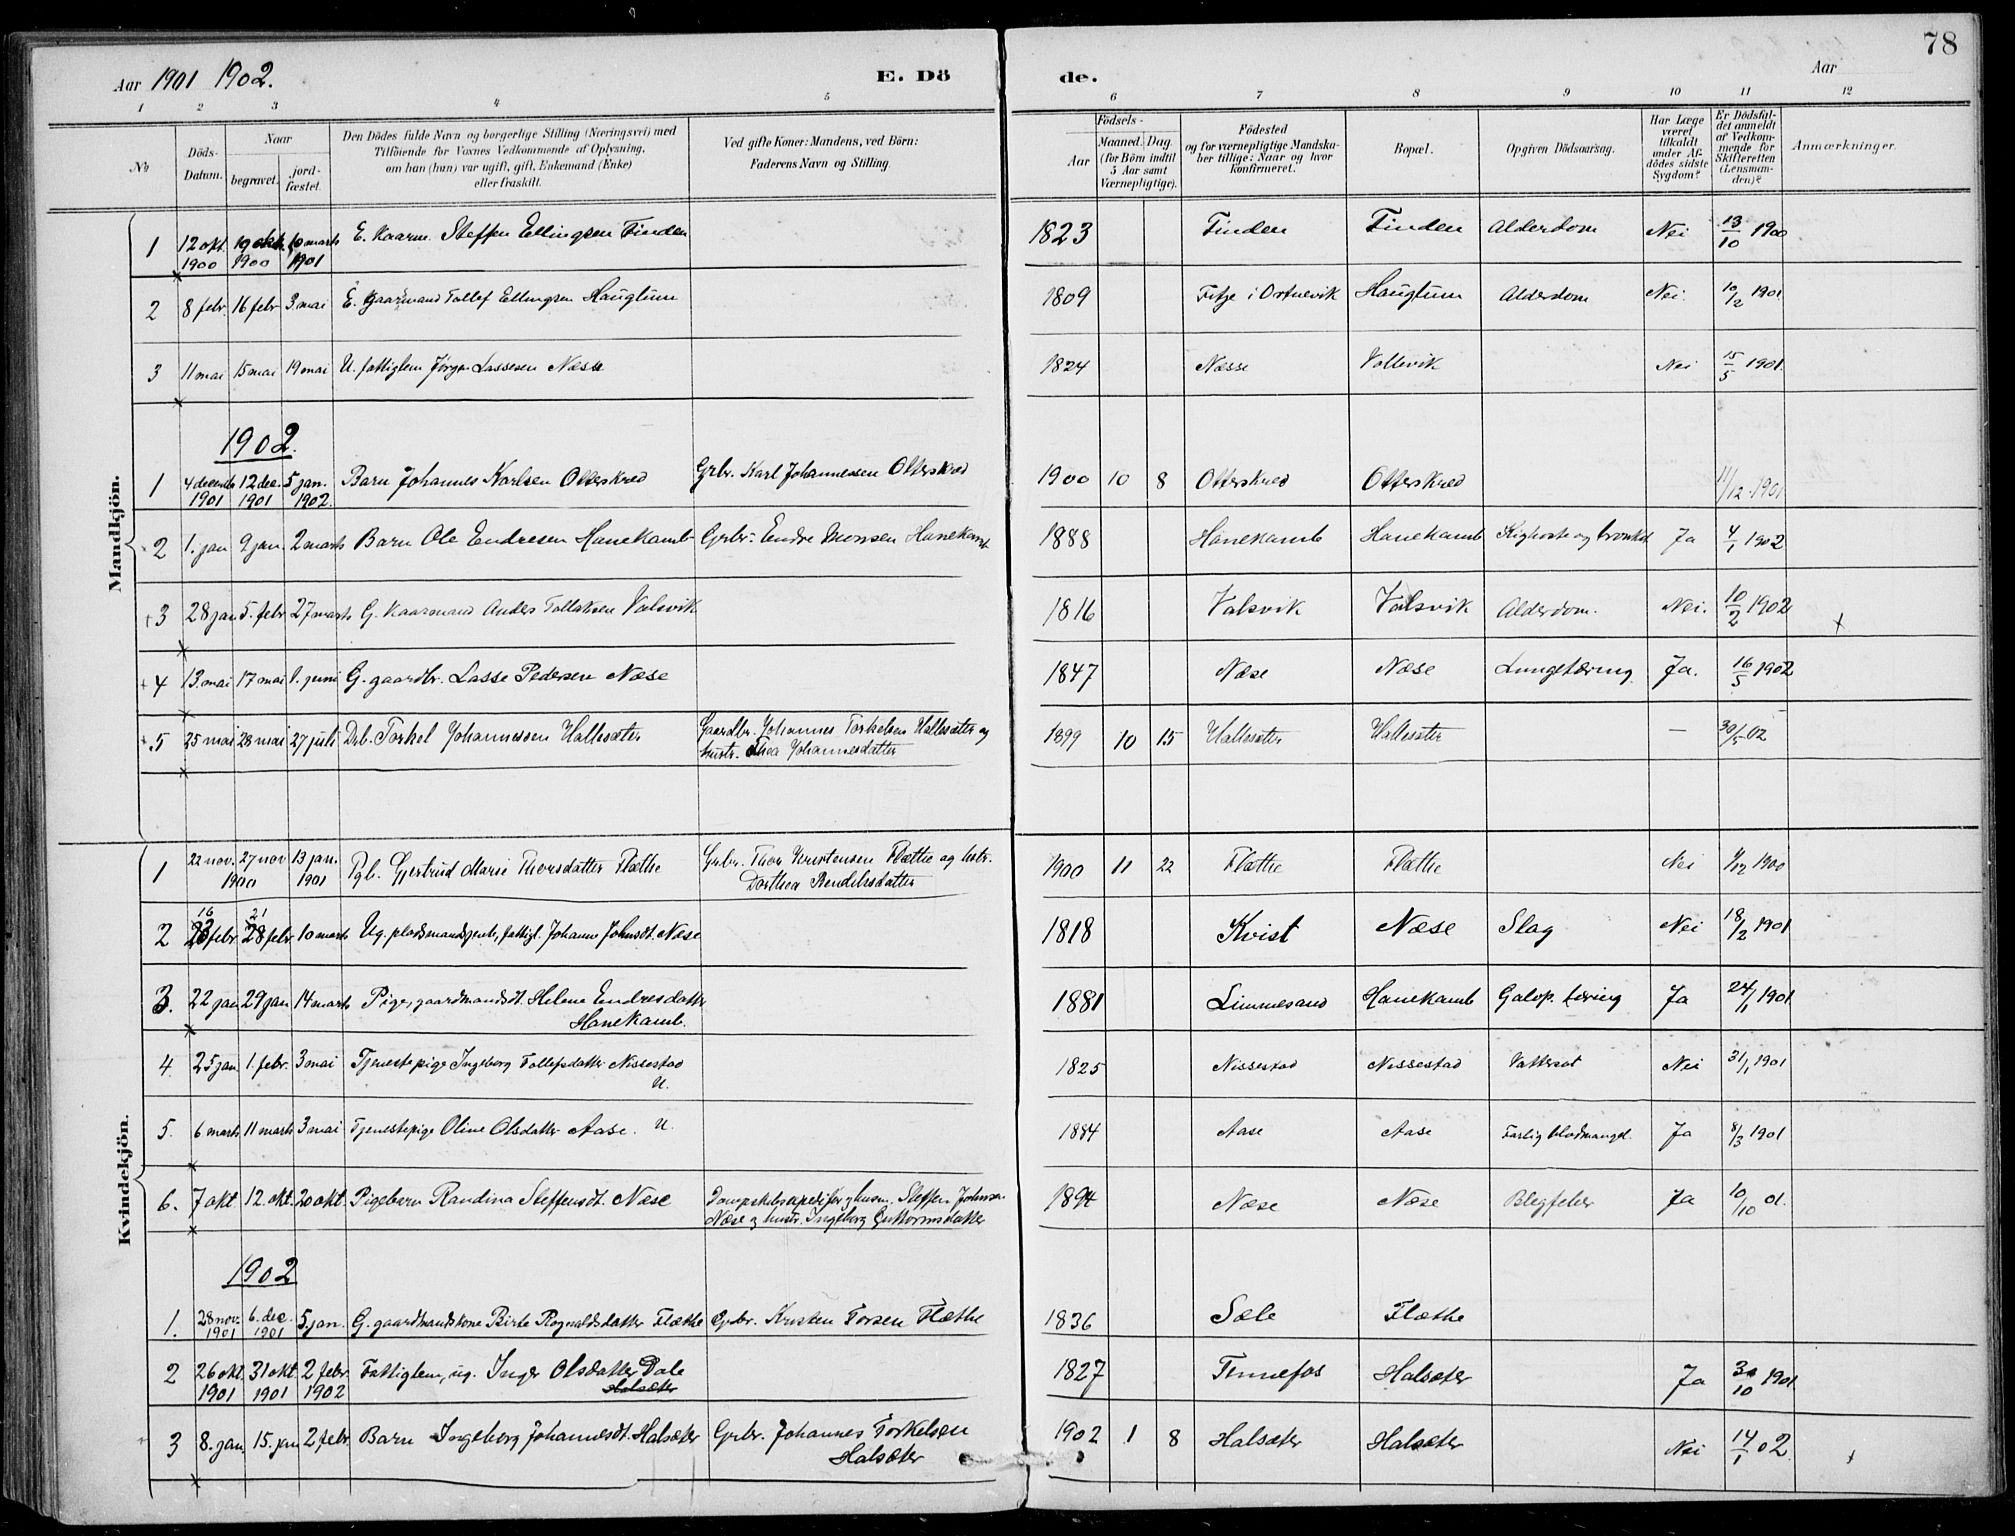 78
Aar 1901 1902.
E. Dö
de.
Aar
1 2 3 4 5 6 7 8 9 10 11 12
No
Döds-Datum.
Naar
begravet.
jord-fæstet.
Den Dödes fulde Navn og borgerlige Stilling (Næringsvei) med
Tilföiende for Voxnes Vedkommende af Oplysning,
om han (hun) var ugift, gift, Enkemand (Enke)
eller fraskilt.
Ved gifte Koner: Mandens, ved Börn:
Faderens Navn og Stilling.
Födsels-
Aar
Maaned. Dag.
(for Börn indtil
5 Aar samt
Værnepligtige).
Födested
og for værnepligtige Mandska-
ber tillige: Naar og hvor
konfirmeret.
Bopæl.
Opgiven Dödsaarsag.
Har Læge
været
tilkaldt
under Af-
dödes sidste
Sygdom?
Er Dödsfal-
det anmeldt
af Vedkom-
mende for
Skifteretten
(Lensman-
den)?
Anmærkninger.
Mandkjön.
1 12 okt. 1900 19 okt. 1900 10 marts 1901 E. Kaarm. Steffen Ellingsen Finden 1823 Finden Finden Alderdom Nei 13/10 1900
2 8 febr. 16 febr 3. mai E. gaardmand Tollef Ellingsen Hauglum 1809 Fitje i Ortnevik Hauglum Alderdom Nei. 10/2 1901
3 11 mai 15 mai 19 mai U. fattiglem Jørgen Lassesen Næsse 1824 Næsse Vollevik Nei 15/5 1901.
1902.
1 4 decemb 1901 12 dec. 1901 5 jan. 1902. Barn Johannes Karlsen Otterskred Grbr. Karl Johannessen Otterskred 1900 10 8 Otterskred Otterskred 11/12 1901
2 1. jan 9 jan. 2 marts Barn Ole Endresen Hanekamb Grbr. Endre Monsen Hanekamb 1888 Hanekamb Hanekamb Kighoste og bronkit Ja 4/1 1902
3 28 jan 5. febr. 27 marts G. Kaarmand Anders Tollaksen Valsvik 1816 Valsvik Valsvik Alderdom. Nei. 10/2 1902
4 13. mai 17 mai 1. juni G. gaardbr. Lasse Pedersen Næse 1847 Næse Næse Lungetæring Ja. 16/5 1902
5 25 mai 28 mai 27 juli Drb. Torkel Johannessen Hallesæter Gaardbr. Johannes Torkelsen Hallesæter og
hustr. Thea Johannesdatter 1899 10 15 Hallesæter Hallesæter — 30/5 02
Kvindekjön.
1 22 nov. 27 nov 1900 13 jan. 1901 Pgb. Gjertrud Marie Thorsdatter Flæthe Grbr. Thor Kristensen Flæthe og hstr.
Dorthea Bendiksdatter 1900 11 22 Flæthe Flæthe Nei 1/12 1900
2 16 23 febr. 21 28 febr. 10 marts Ug. pladsmandsjente, fattigl. Johanne Johnsdt. Næse 1818 Kvist Næse Slag Nei 18/2 1901
3. 22 jan 29 jan 14 marts Pige, gaardmandsdt. Helene Endresdatter
Hanekamb. 1881 Limmesand Hanekamb Galop. tæring Ja 24/1 1901.
4. 25 jan. 1. febr. 3 mai Tjenestepige Ingeborg Tollefsdatter Nissestad
U. 1825 Nissestad Nissestad Vattersot Nei 31/1 1901
5. 6 marts 11 marts 3 mai Tjenestepige Oline Olsdatter Aase. U. 1884 Aase Aase Farlig blodmangel. Ja 8/3 1901
6. 7 okt. 12 okt. 20 okt. Pigebarn Randina Steffensdt. Næse Dampskibsexpeditør og husm. Steffen Johnsen
Næse og hustr. Ingeborg Guttormsdatter 1894 Næse Næse Blegfeber Ja 10/10 01.
1902
1. 28 nov. 1901 6. dec. 1901 5. jan. G. gaardmandskone Birte Rognaldsdatter Flæthe Grbr. Kristen Torsen Flæthe 1836 Sæle Flæthe
2 26 okt. 1901 31 okt. 1901 2 febr. 1902 Fattiglem, ug. Inger Olsdatter Dale
Halsæter 1827 Finnefos Halsæter Ja 30/10 1901.
3 8. jan. 15. jan 2 febr. Barn Ingeborg Johannesdt. Halsæter Grbr. Johannes Torkelsen
Halsæter 1902 1 8 Halsæter Halsæter Nei 14/1 02.